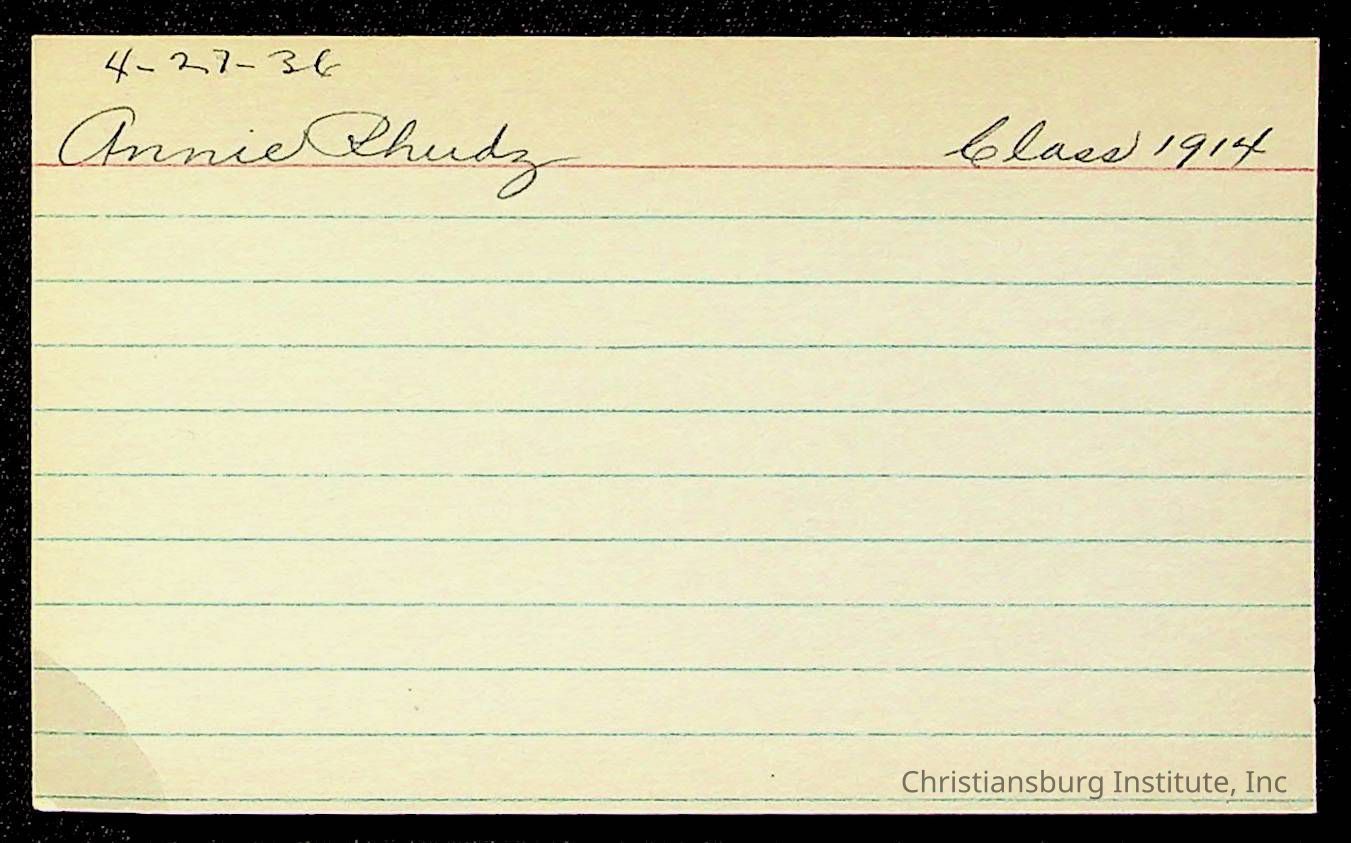 4-27-36
Annie Rhudy Class 1914
Christiansburg Institute, Inc